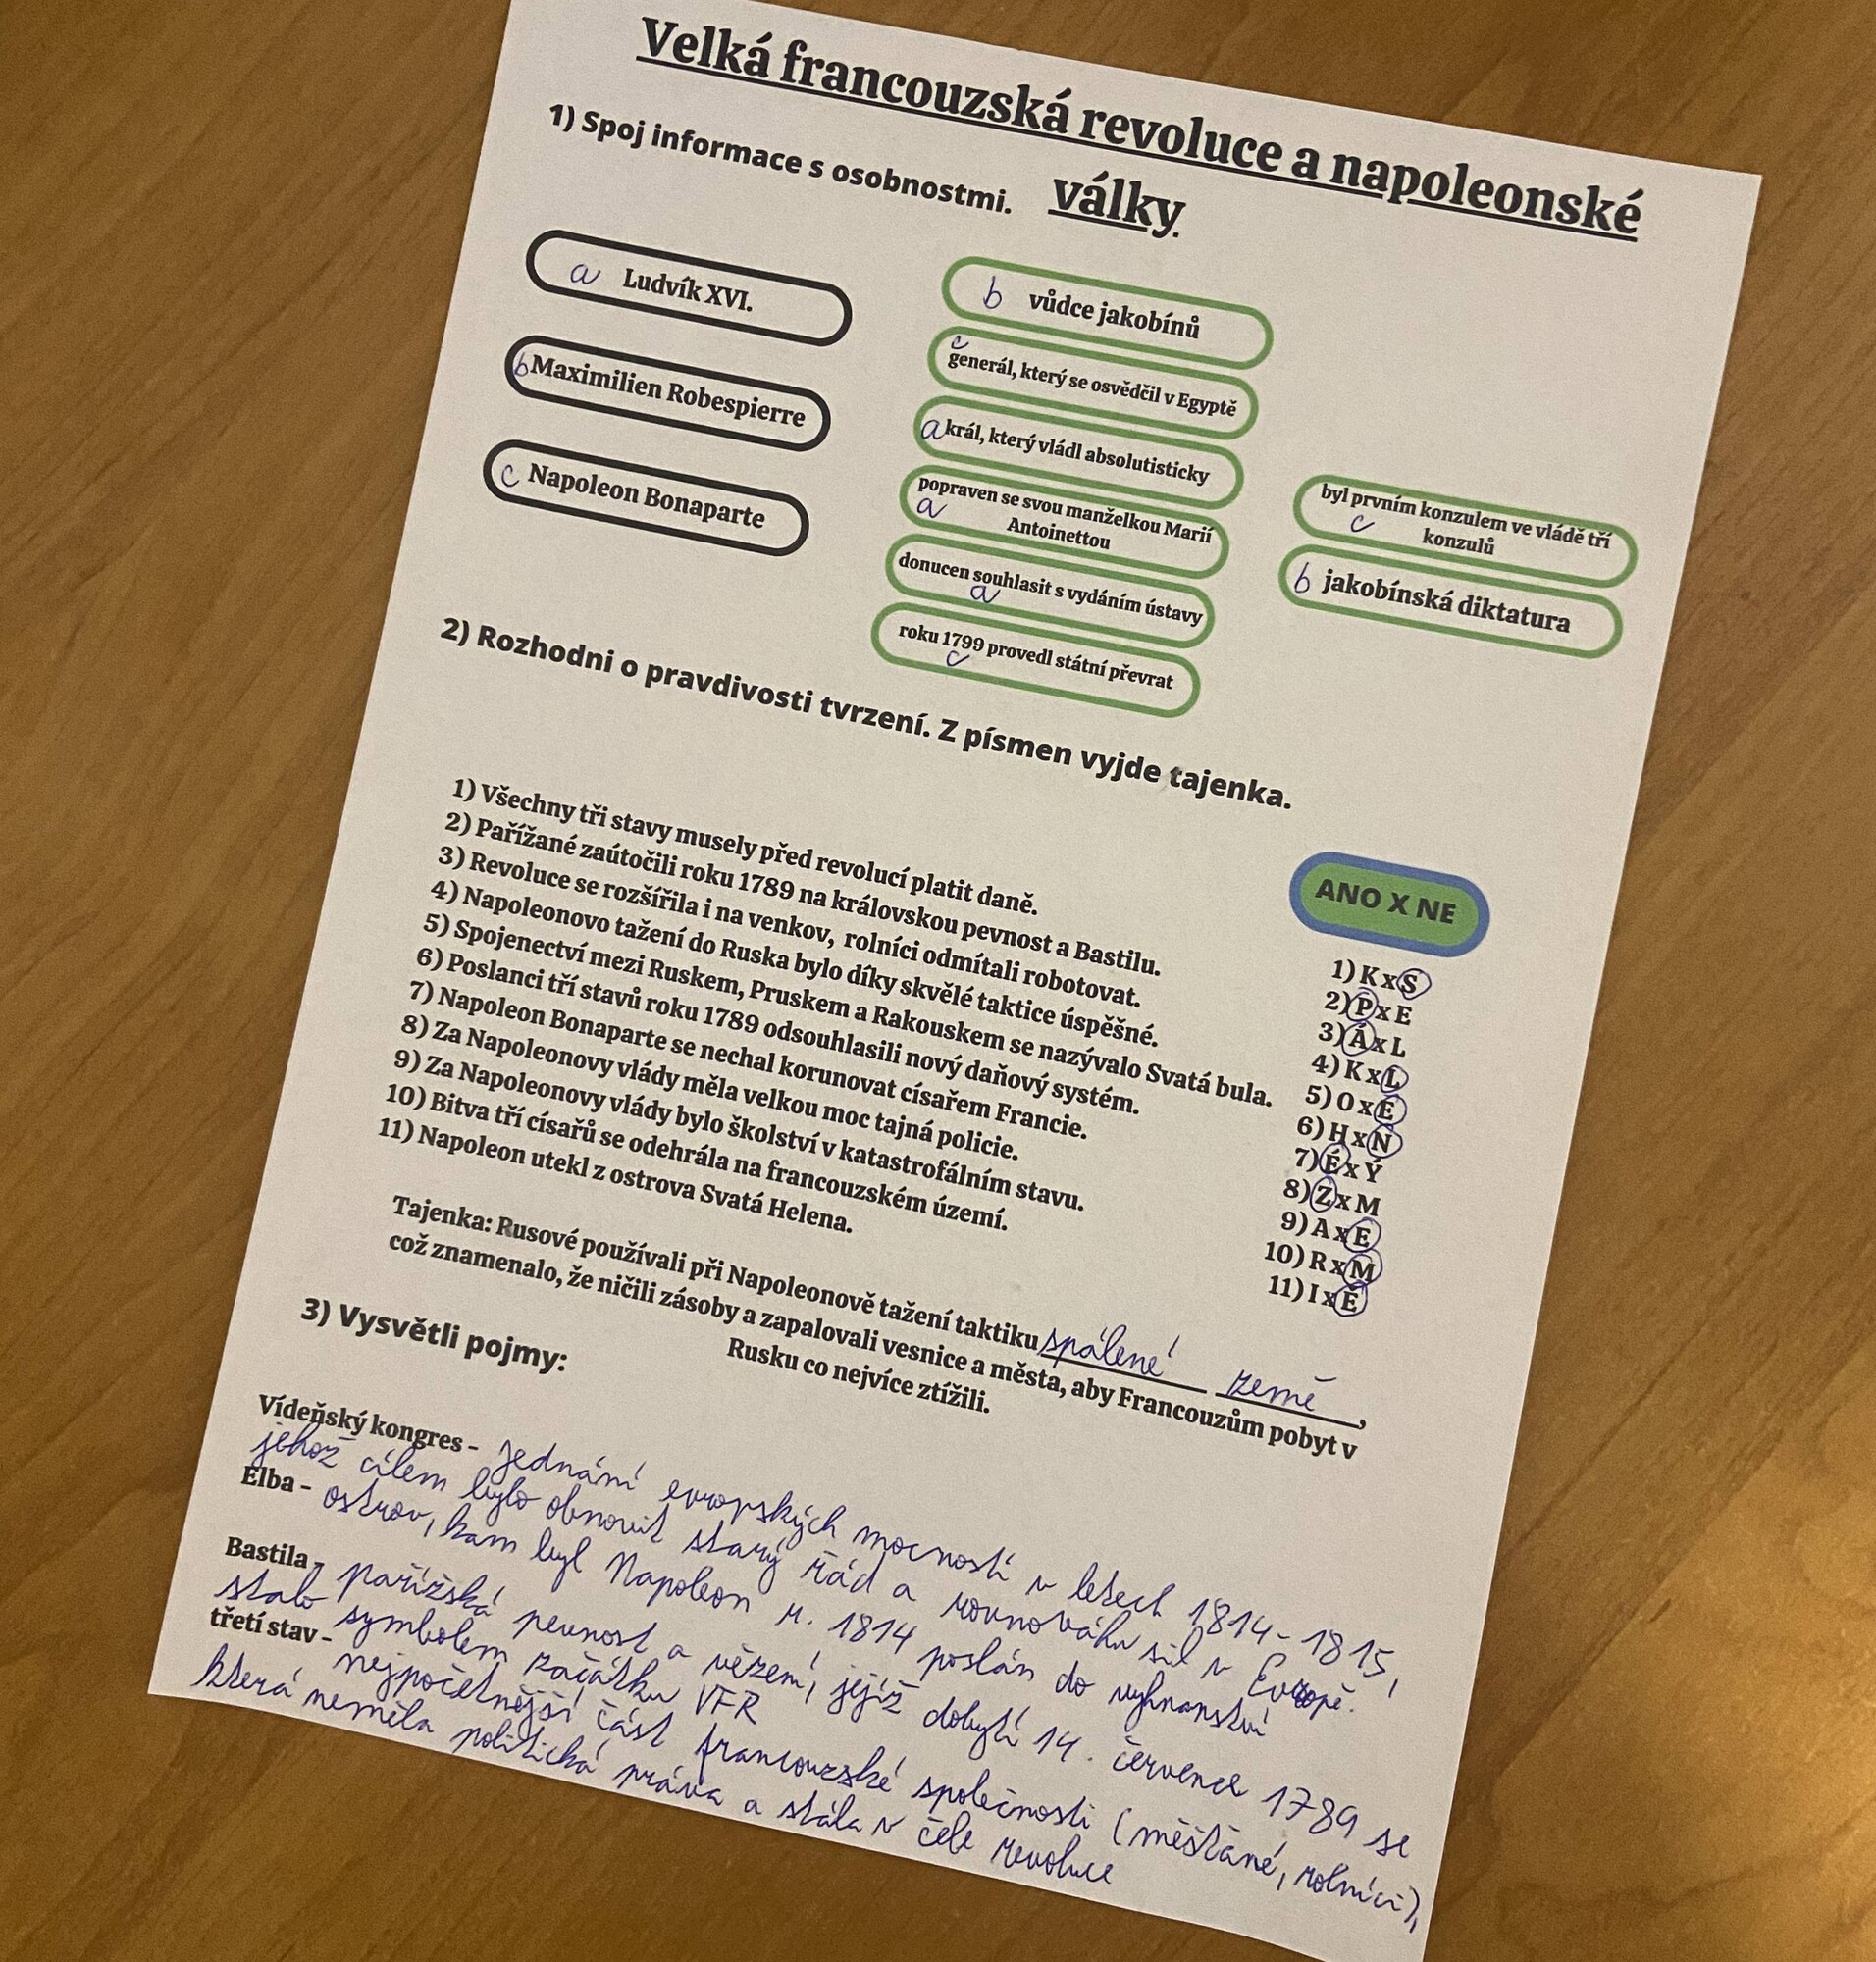 Velká francouzská revoluce a napoleonské
války
1) Spoj informace s osobnostmi.
a Ludvík XVI.
b Maximilien Robespierre
c Napoleon Bonaparte
b vůdce jakobínů
c
generál, který se osvědčil v Egyptě
a král, který vládl absolutisticky
popraven se svou manželkou Marií
a Antoinettou
donucen souhlasit s vydáním ústavy
a
roku 1799 provedl státní převrat
c
byl prvním konzulem ve vládě tří
c konzulů
b jakobínská diktatura
2) Rozhodni o pravdivosti tvrzení. Z písmen vyjde tajenka.
1) Všechny tři stavy musely před revolucí platit daně.
2) Pařížané zaútočili roku 1789 na královskou pevnost a Bastilu.
3) Revoluce se rozšířila i na venkov, rolníci odmítali robotovat.
4) Napoleonovo tažení do Ruska bylo díky skvělé taktice úspěšné.
5) Spojenectví mezi Ruskem, Pruskem a Rakouskem se nazývalo Svatá bula.
6) Poslanci tří stavů roku 1789 odsouhlasili nový daňový systém.
7) Napoleon Bonaparte se nechal korunovat císařem Francie.
8) Za Napoleonovy vlády měla velkou moc tajná policie.
9) Za Napoleonovy vlády bylo školství v katastrofálním stavu.
10) Bitva tří císařů se odehrála na francouzském území.
11) Napoleon utekl z ostrova Svatá Helena.
ANO X NE
1) K x S
2) P x E
3) Á x L
4) K x L
5) O x E
6) H x N
7) É x Ý
8) Z x M
9) A x E
10) R x M
11) I x Ě
Tajenka: Rusové používali při Napoleonově tažení taktiku spálené země,
což znamenalo, že ničili zásoby a zapalovali vesnice a města, aby Francouzům pobyt v
Rusku co nejvíce ztížili.
3) Vysvětli pojmy:
Vídeňský kongres - jednání evropských mocností v letech 1814-1815,
jehož cílem bylo obnovit starý řád a rovnováhu sil v Evropě.
Elba - ostrov, kam byl Napoleon r. 1814 poslán do vyhnanství
Bastila - pařížská pevnost a vězení, jejíž dobytí 14. července 1789 se
stalo symbolem začátku VFR
třetí stav - nejpočetnější část francouzské společnosti (měšťané, rolníci),
která neměla politická práva a stála v čele revoluce